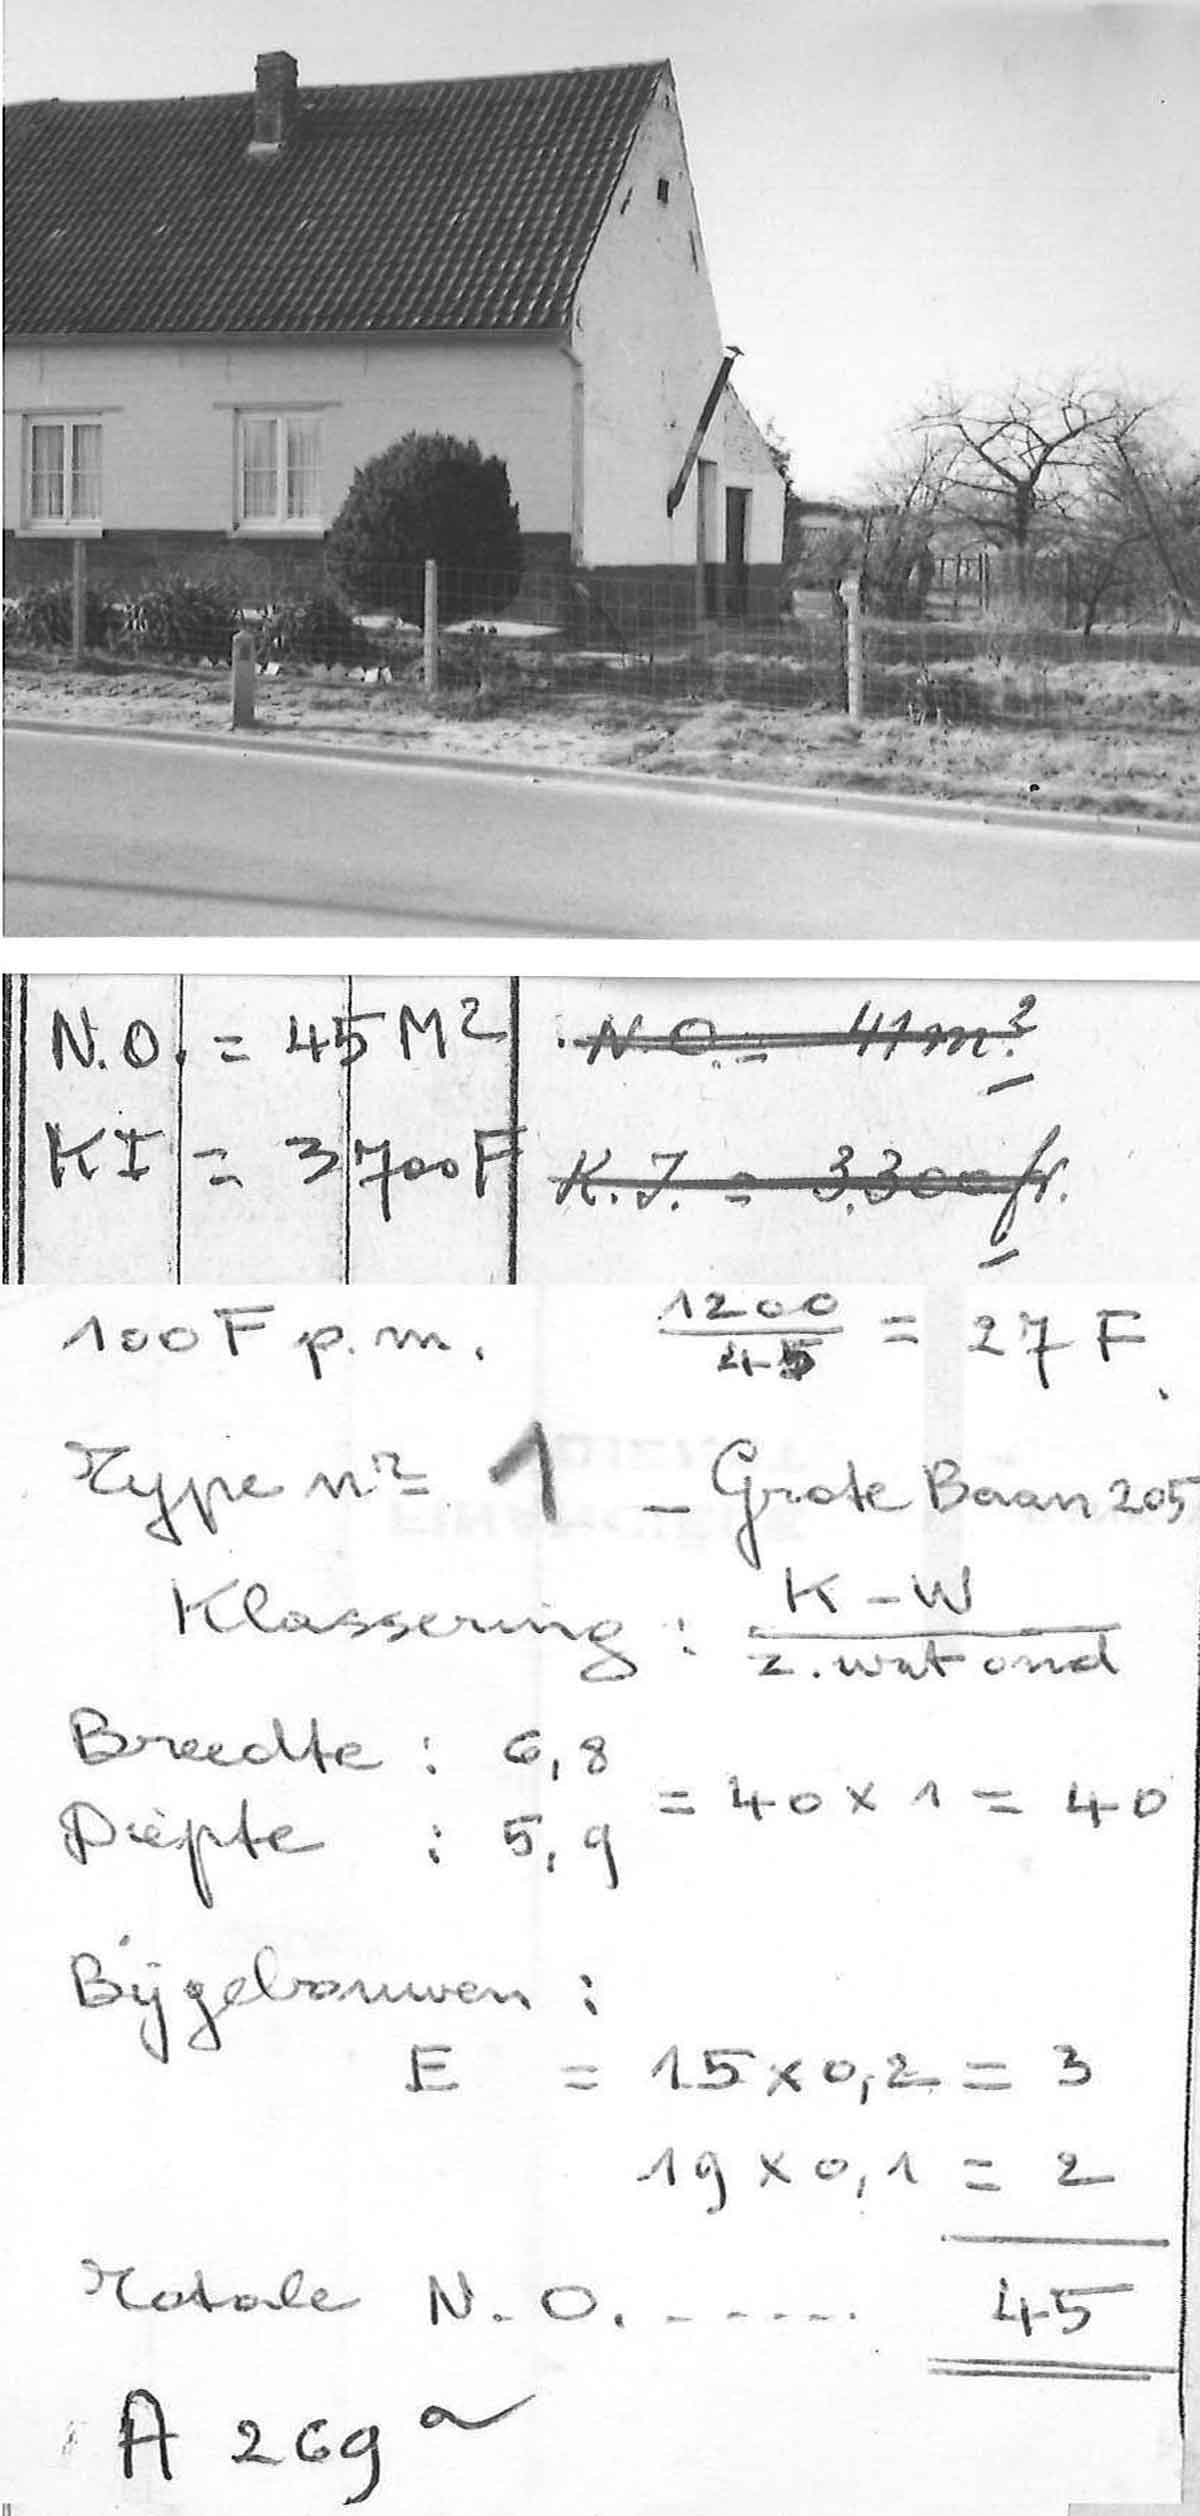 N.O. = 45 M² N.O. = 41 m²
KI = 3700 F K.I. = 3.300 fr.
100 F p.m. 1200/45 = 27 F.
Type nr 1 - Grote Baan 205
Klassering : K-W
z. wat ond
Breedte : 6,8
= 40 x 1 = 40
Diepte : 5,9
Bijgebouwen :
E = 15 x 0,2 = 3
19 x 0,1 = 2
Totale N.O. ------ 45
A 269 a